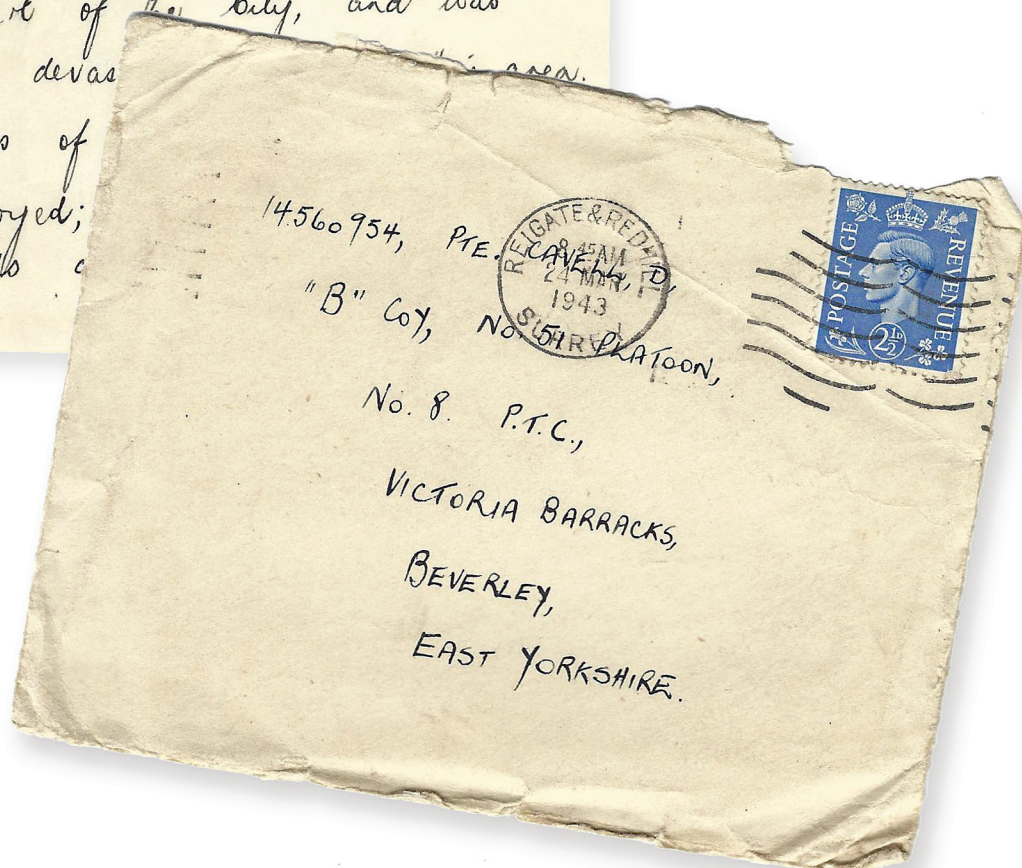 of the City, and was
devas area.
of
oyed;
14560954, PTE. CAVELL, D,
"B" COY, No. 51 PLATOON,
No. 8. P.T.C.,
VICTORIA BARRACKS,
BEVERLEY,
EAST YORKSHIRE.
REIGATE & REDHILL
8.45 AM
24 MAR
1943
SURREY
POSTAGE
REVENUE
2½D